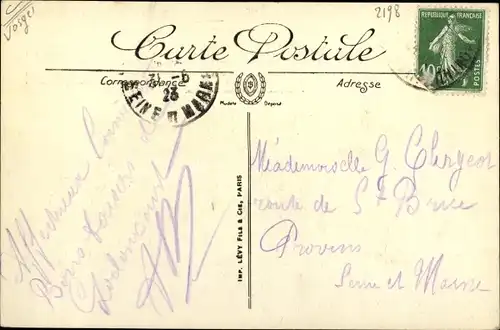 Vosges
2198
Carte Postale
Correspondance
Adresse
REPUBLIQUE FRANÇAISE
10
POSTES
31 -8
23
SEINE ET MARNE
Modèle Déposé
Affectueux
Bons baisers de
IMP. LÉVY FILS & CIE, PARIS
Mademoiselle G. Clergeot
route de St Brice
Provins
Seine et Marne